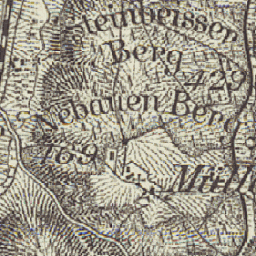 teinbeisser
Berg
429
ebauen Berg
469
Mühl